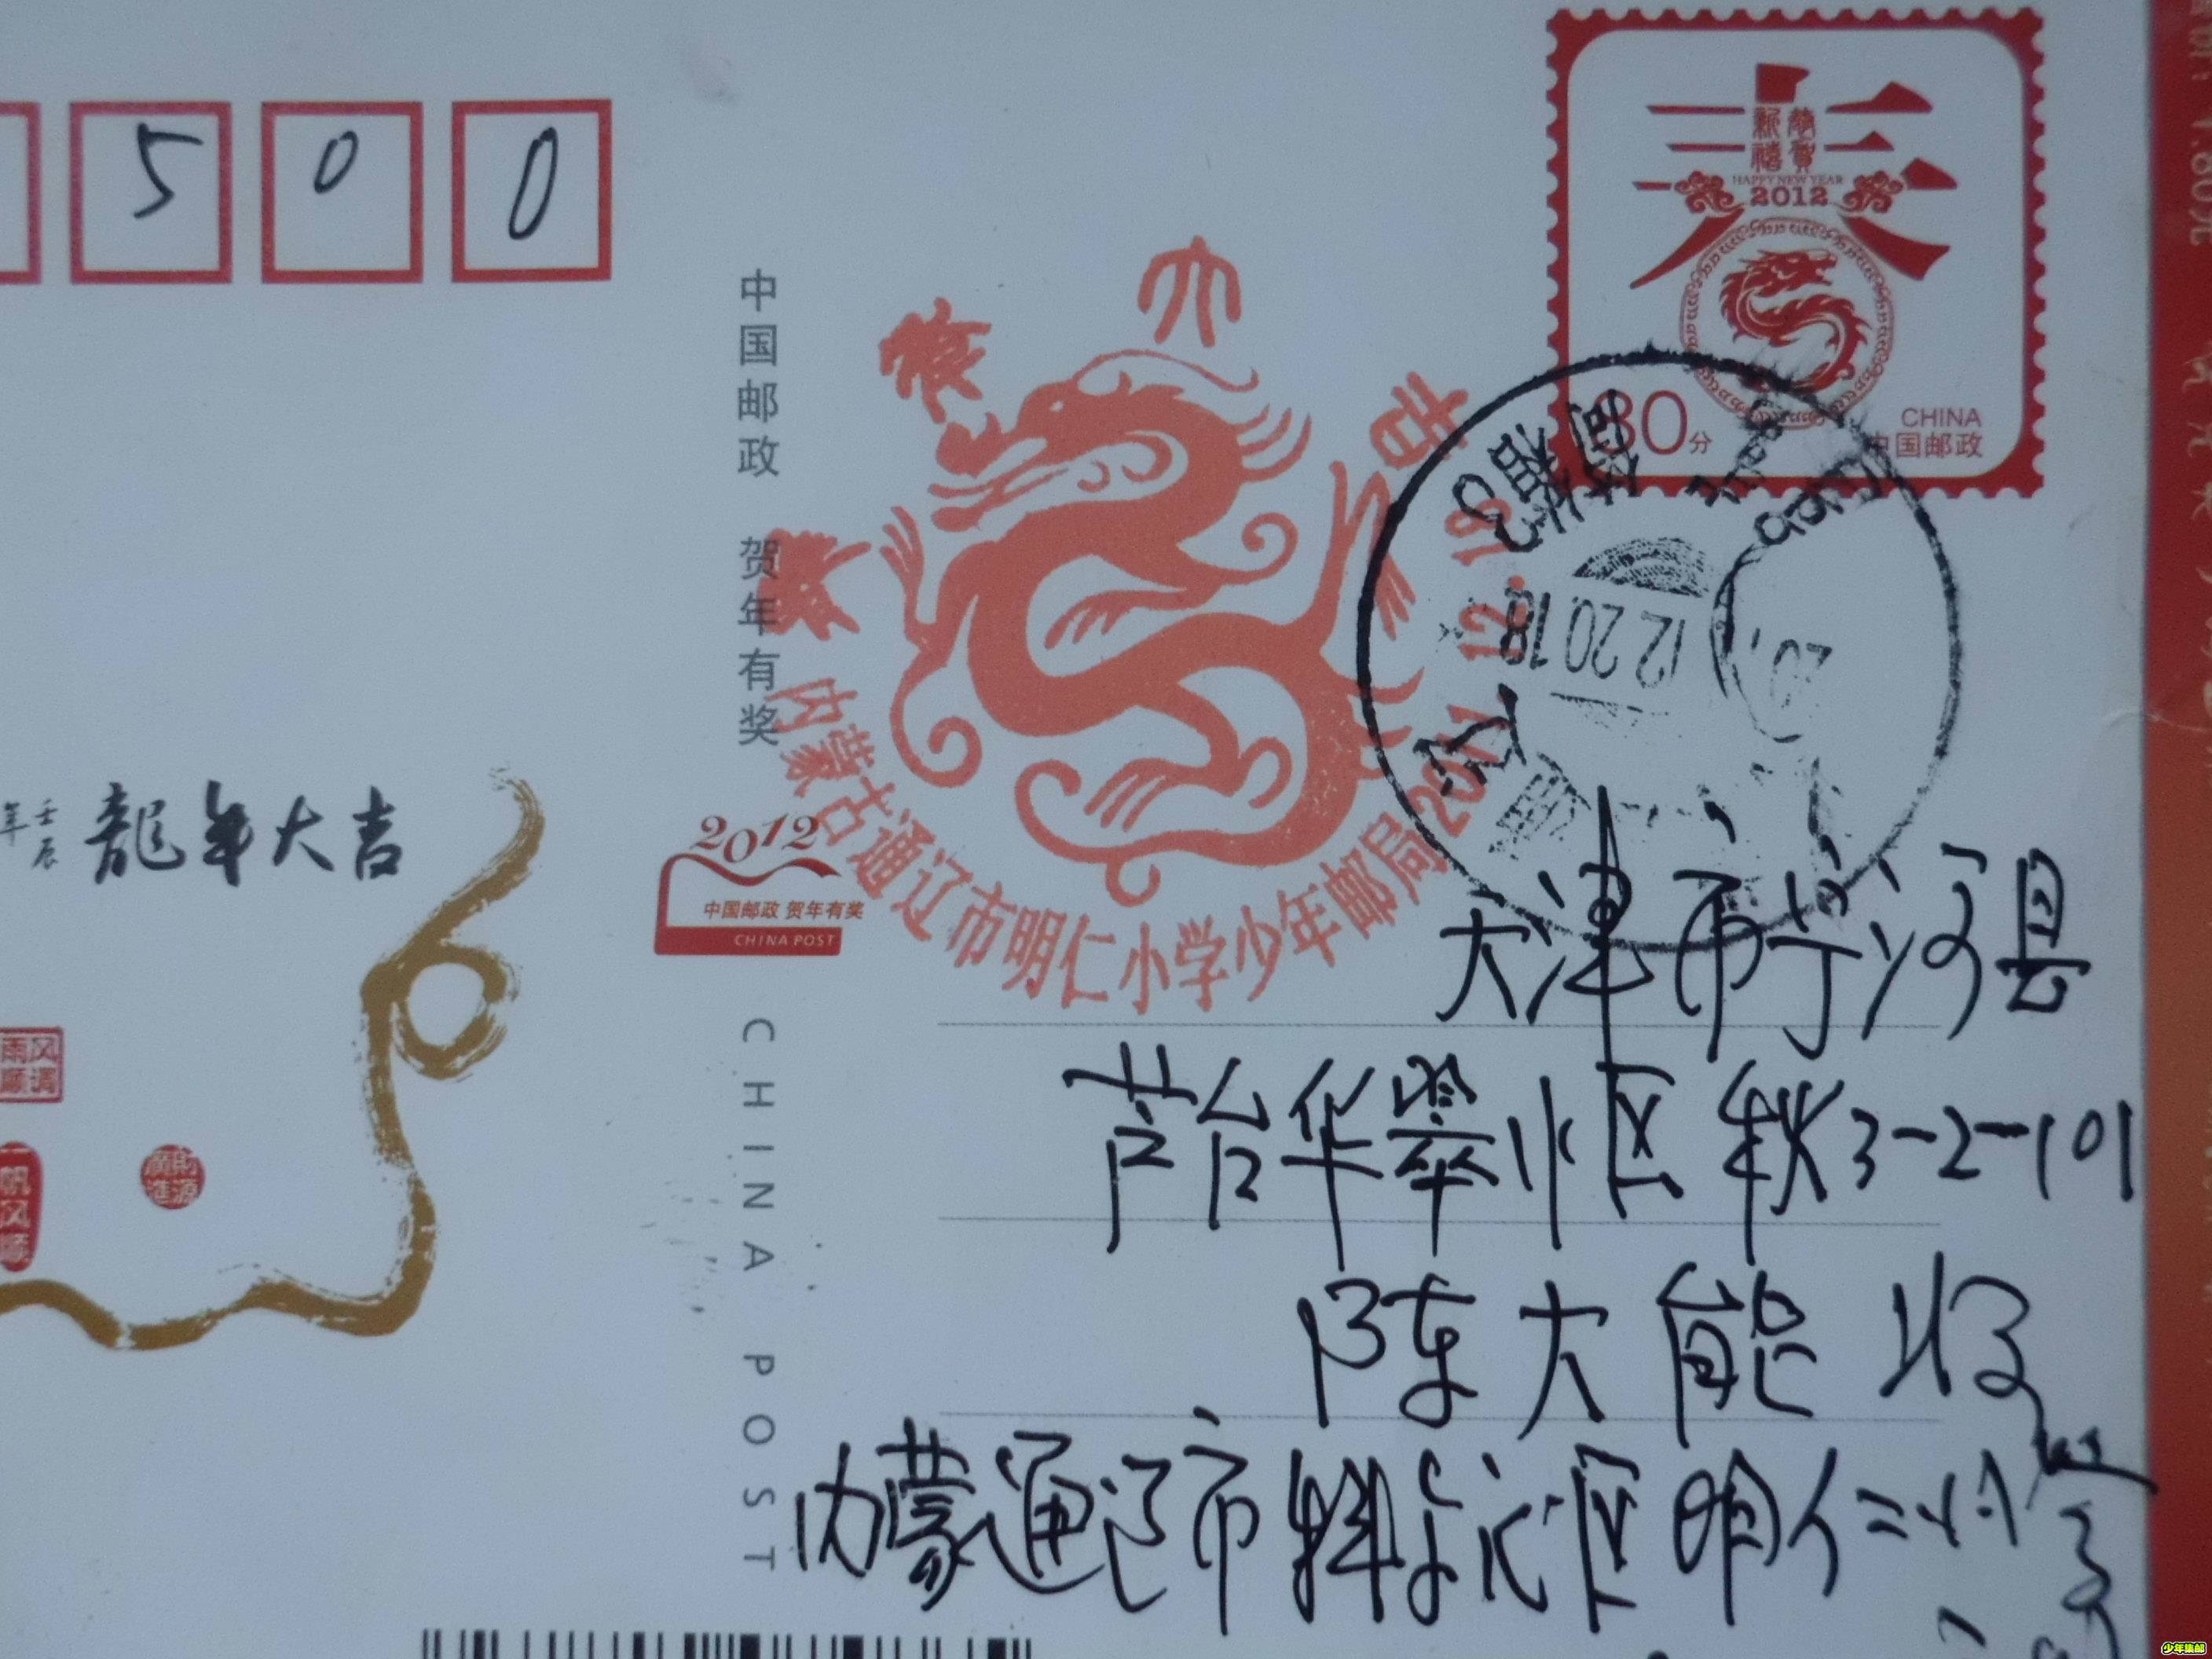 5 0 0
新恭
禧贺
HAPPY NEW YEAR
2012
春
80分
CHINA
中国邮政
中国邮政 贺年有奖
龙年大吉
内蒙古通辽市明仁小学少年邮局 2011.12.18
12.20.18
壬辰
年
龍年大吉
2012
中国邮政 贺年有奖
CHINA POST
CHINA POST
风调
雨顺
一帆风顺
财源
广进
天津市宁河县
芦台华翠小区秋3-2-101
陈大能 收
内蒙通辽市科尔沁区明仁小学
少年集邮